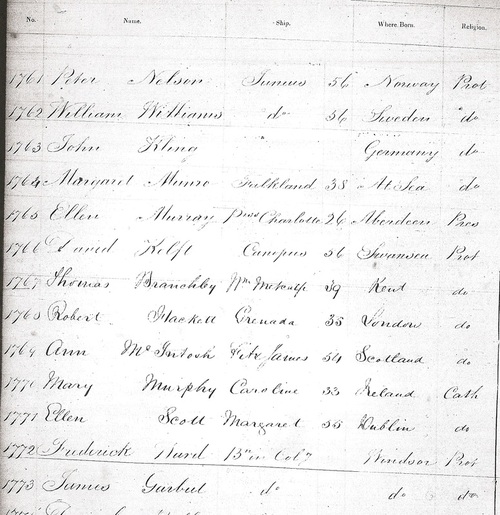 No. Name. Ship. Where Born. Religion.
1761 Peter Nelson Junius 56 Norway Prot
1762 William Williams do 36 Sweden do
1763 John Kling Germany do
1764 Margaret Munro Falkland 38 At Sea do
1765 Ellen Murray Prss Charlotte 26 Aberdeen Pres
1766 David Canopus 36 Swansea Prot
1767 Thomas Branchby Wm Metcalfe 39 Kent do
1768 Robert Hackett Grenada 35 London do
1769 Ann McIntosh Fitz James 54 Scotland do
1770 Mary Murphy Caroline 33 Ireland Cath
1771 Ellen Scott Margaret 35 Dublin do
1772 Frederick Ward B'n in Col'y Windsor Prot
1773 James Garbut do do do